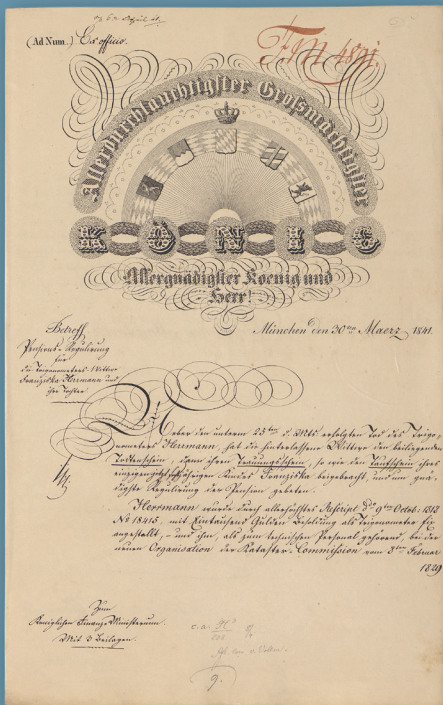 (Ad Num.) Ex officio.
Fin
Allerdurchlauchtigster Großmächtigster
KOENIG
Allergnädigster Koenig und
Herr!
München den 30ten Maerz 1841.
Betreff
Pensions-Regulirung
für
die Trigonometers-Wittwe
Franziska Herrmann und
ihre Tochter.
Ueber den unterm 25ten d. Mts erfolgten Tod des Trigo-
nometers Herrmann, hat die hinterlassene Wittwe den beiliegenden
Todtenschein, dann ihren Trauungsschein, so wie den Taufschein ihres
einzigen Kindes Franziska beigebracht, und um gnä-
digste Regulirung der Pension gebeten.
Herrmann wurde durch allerhöchstes Rescript dd 9ten Octob: 1812
No 18415. mit Eintausend Gulden Besoldung als Trigonometer
angestellt, und ihm, als zum technischen Personal gehörend, bei der
neuen Organisation der Kataster-Commission vom Februar
1829
Zum
Königlichen Finanz-Ministerium.
Mit 3 Beilagen.
9.